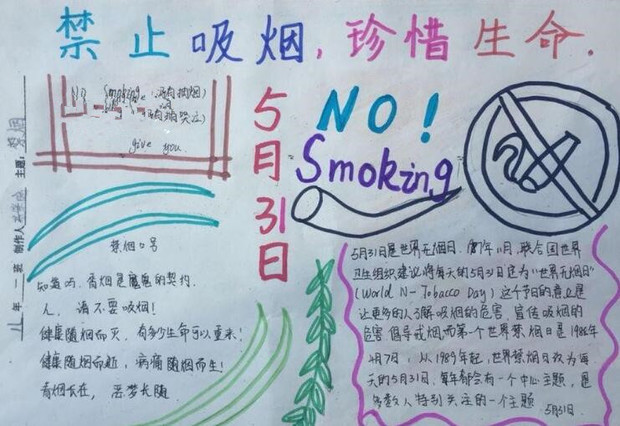 禁止吸烟，珍惜生命.
No Smoking
give you
5月31日
NO！
Smoking
主题：禁烟
制作人
年一班
禁烟口号
知道吗，香烟是魔鬼的契约.
人，请不要吸烟！
健康随烟而灭，有多少生命可以重来！
健康随烟而逝，病痛随烟而生！
香烟长在，恶梦长随.
5月31日是世界无烟日.
卫生组织建议将每天的5月31日定为“世界无烟日”
(World N- Tobacco Day) 这个节日的意义是
让更多的人了解吸烟的危害，宣传吸烟的
危害 倡导戒烟 而第一个世界禁烟日是1988年
4月7日；从1989年起，世界禁烟日改为每
天的5月31日，每年都会有一个中心主题，是
多数人特别关注的一个主题
5月31日